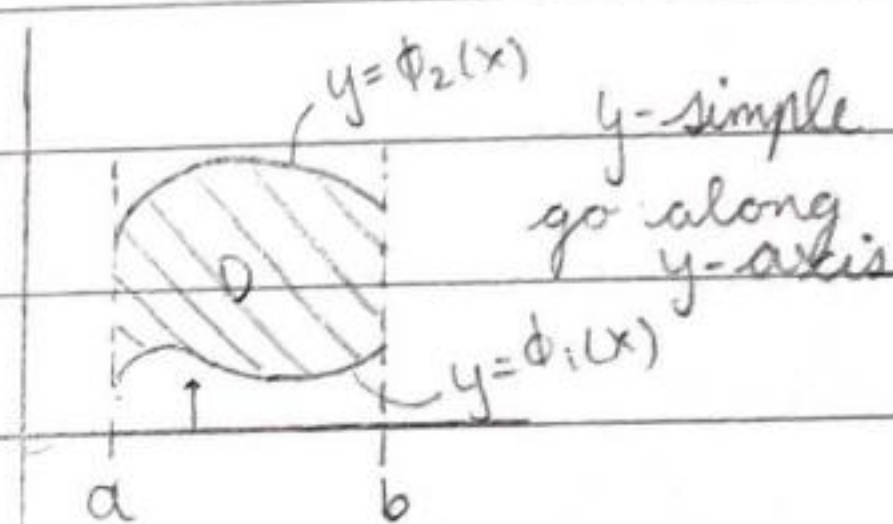 y=ϕ₂(x)
y-simple
go along
y-axis
D
y=ϕ₁(x)
a
b